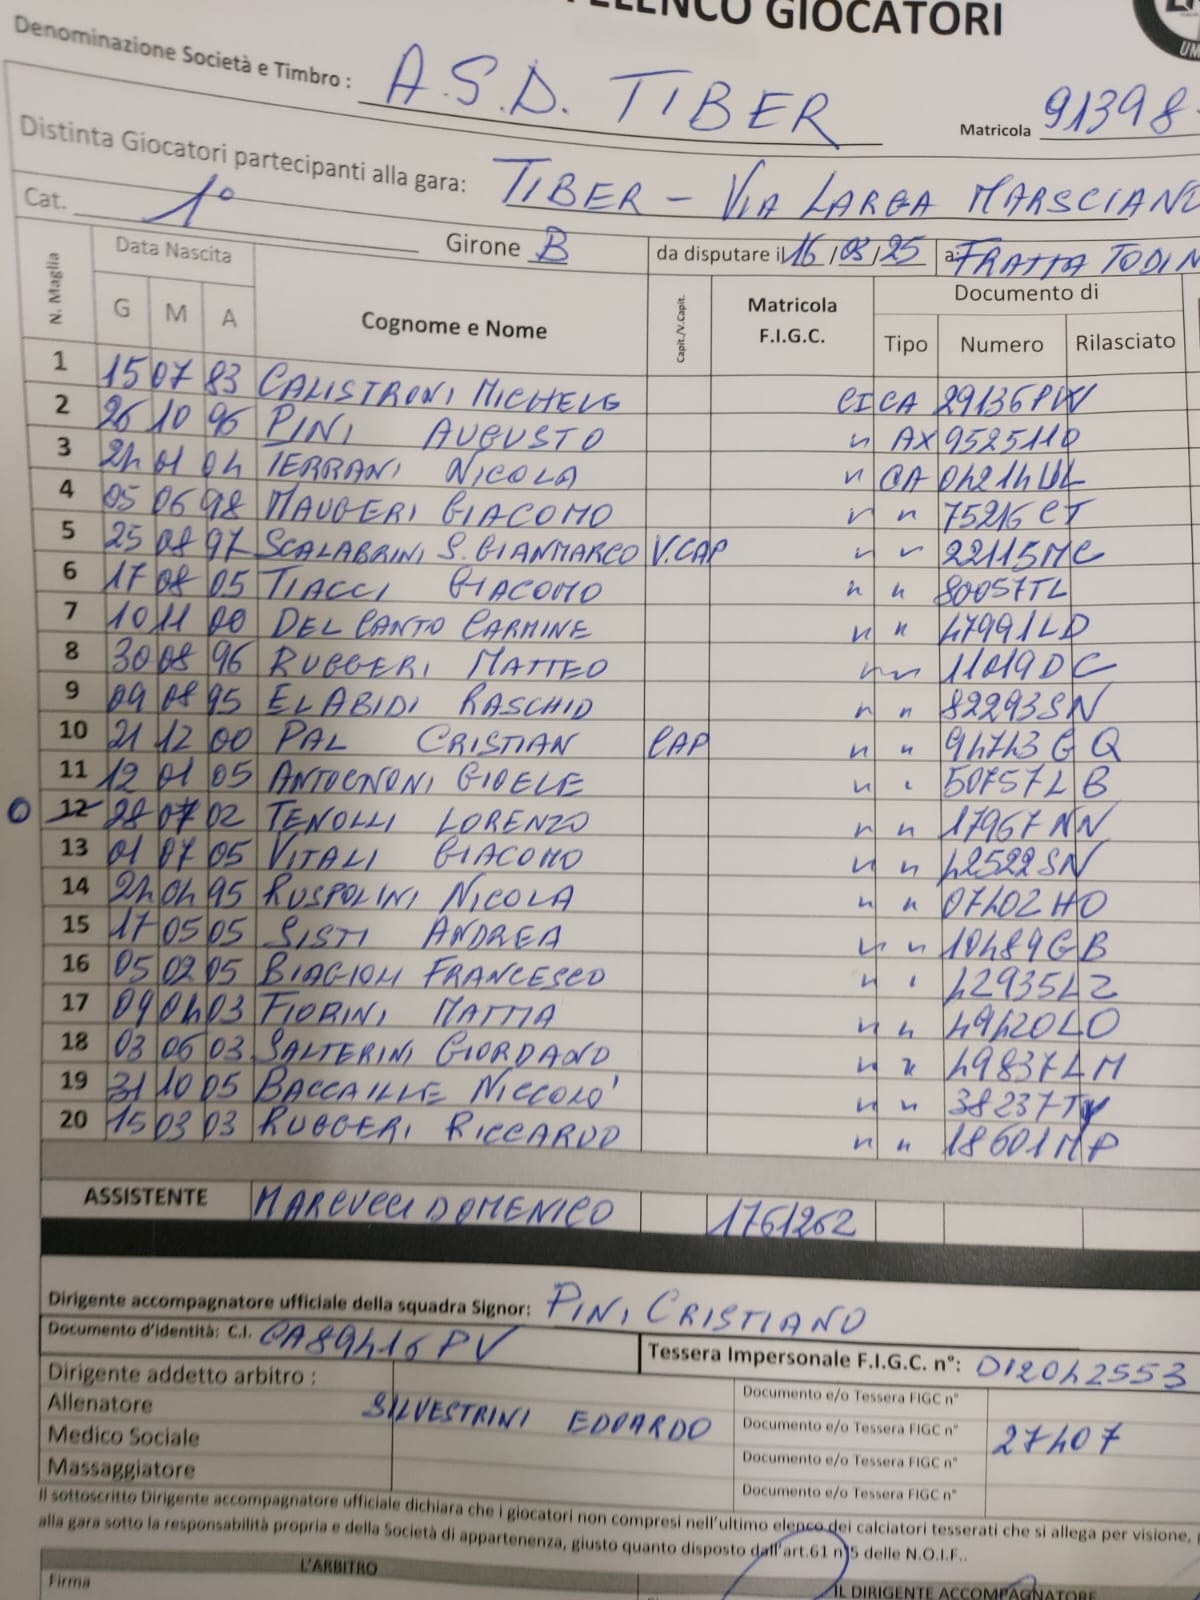 ELENCO GIOCATORI
Denominazione Società e Timbro : A.S.D. TIBER Matricola 91398
Distinta Giocatori partecipanti alla gara: TIBER - VIA LARGA MARSCIANO
Cat. 1° Girone B da disputare il 16/03/25 a: FRATTA TODIN
N. Maglia Data Nascita G M A Cognome e Nome Capit./V.Capit. Matricola F.I.G.C. Documento di Tipo Numero Rilasciato
1 15 07 83 CALISTRONI MICHELE CI CA 29136PW
2 26 10 96 PINI AUGUSTO " AX 9525110
3 24 01 04 TERRANI NICOLA " CA 04214UL
4 05 06 98 MAUGERI GIACOMO " " 75216CT
5 25 08 97 SCALABRINI S. GIANMARCO V.CAP " " 22115MC
6 17 08 05 TIACCI GIACOMO " " 80057TL
7 10 11 00 DEL CANTO CARMINE " " 47991LD
8 30 08 96 RUGGERI MATTEO " " 11019DC
9 09 08 95 EL ABIDI RASCHID " " 82293SN
10 21 12 00 PAL CRISTIAN CAP " " 94743GQ
11 12 01 05 ANTOGNONI GIOELE " " 50757LB
12 28 07 02 TENOLLI LORENZO " " 17967NN
13 01 07 05 VITALI GIACOMO " " 42522SN
14 24 04 95 RUSPOLINI NICOLA " " 07402HO
15 17 05 05 SISTI ANDREA " " 10489GB
16 05 02 05 BIAGIOLI FRANCESCO " " 42935LZ
17 09 04 03 FIORINI MATTIA " " 49420LO
18 03 06 03 SALTERINI GIORDANO " " 49837LM
19 31 10 05 BACCAILLE NICCOLO' " " 38237TY
20 15 03 03 RUGGERI RICCARDO " " 18601MP
ASSISTENTE MARCUCCI DOMENICO 1761262
Dirigente accompagnatore ufficiale della squadra Signor: PINI CRISTIANO
Documento d'identità: C.I. CA89416PV Tessera Impersonale F.I.G.C. n°: D12042553
Dirigente addetto arbitro : Documento e/o Tessera FIGC n°
Allenatore SILVESTRINI EDOARDO Documento e/o Tessera FIGC n° 27407
Medico Sociale Documento e/o Tessera FIGC n°
Massaggiatore Documento e/o Tessera FIGC n°
Il sottoscritto Dirigente accompagnatore ufficiale dichiara che i giocatori non compresi nell'ultimo elenco dei calciatori tesserati che si allega per visione,
alla gara sotto la responsabilità propria e della Società di appartenenza, giusto quanto disposto dall'art.61 n°5 delle N.O.I.F..
L'ARBITRO
Firma
IL DIRIGENTE ACCOMPAGNATORE